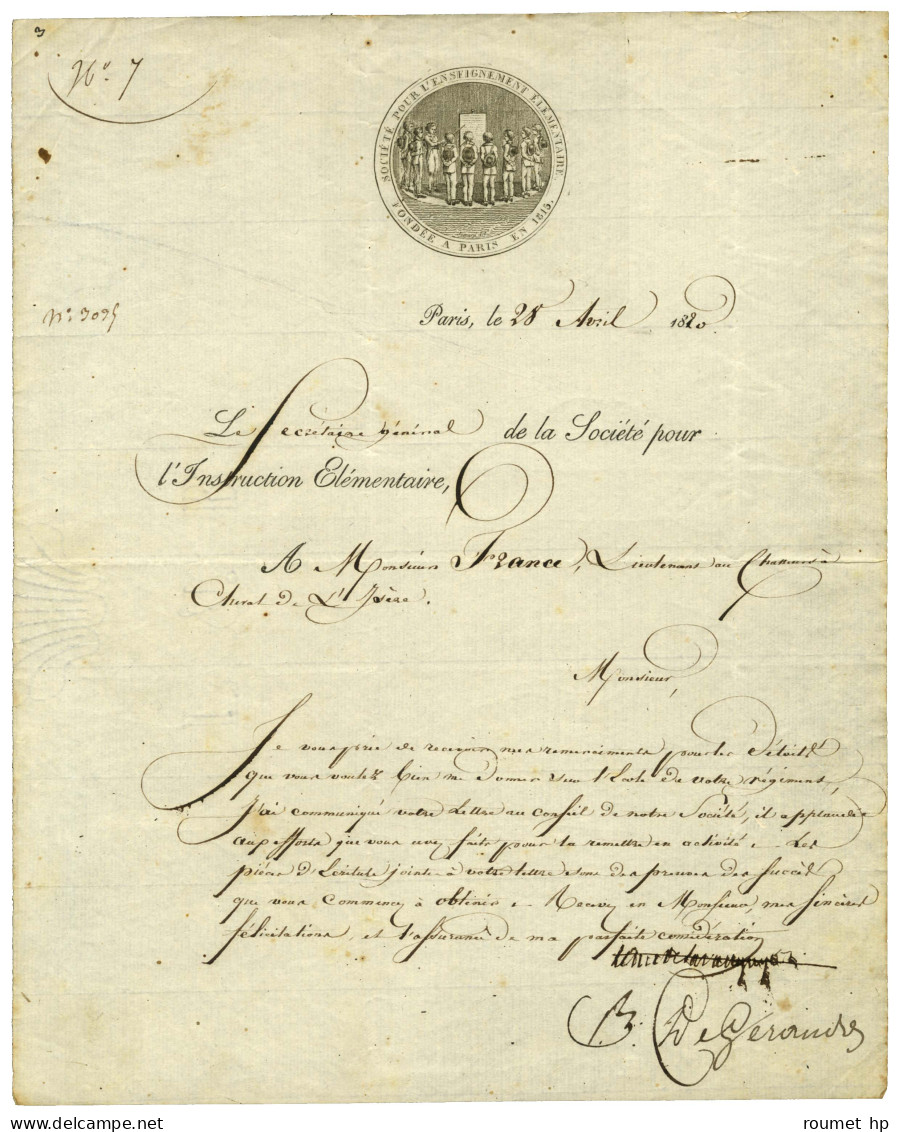 3
No. 7
SOCIÉTÉ POUR L'ENSEIGNEMENT ÉLÉMENTAIRE
FONDÉE A PARIS EN 1815.
No. 3095
Paris, le 28 Avril 1820.
Le Secrétaire Général de la Société pour
l'Instruction Elémentaire,
A Monsieur France, Lieutenant au Chasseurs à
Cheval de L'Isère.
Monsieur,
Je vous prie de recevoir mes remerciments pour les détails
que vous voulez bien me donner sur l'Ecole de votre régiment,
J'ai communiqué votre Lettre au Conseil de notre Société, il applaudit
aux efforts que vous avez faits pour la remettre en activité. Les
pièces d'Ecriture jointes à votre lettre sont des preuves des succès
que vous commencez à obtenir. Recevez en Monsieur, mes sincères
félicitations, et l'assurance de ma parfaite considération
B. De Gérando
Delcampe.net
roumet hp